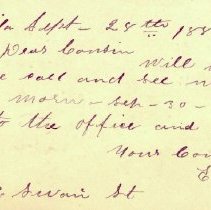 Sept - 28th 188
Dear Cousin
Will
call and see
Morn - Sep - 30 -
to the office and
Yours Cou
E
Swain St